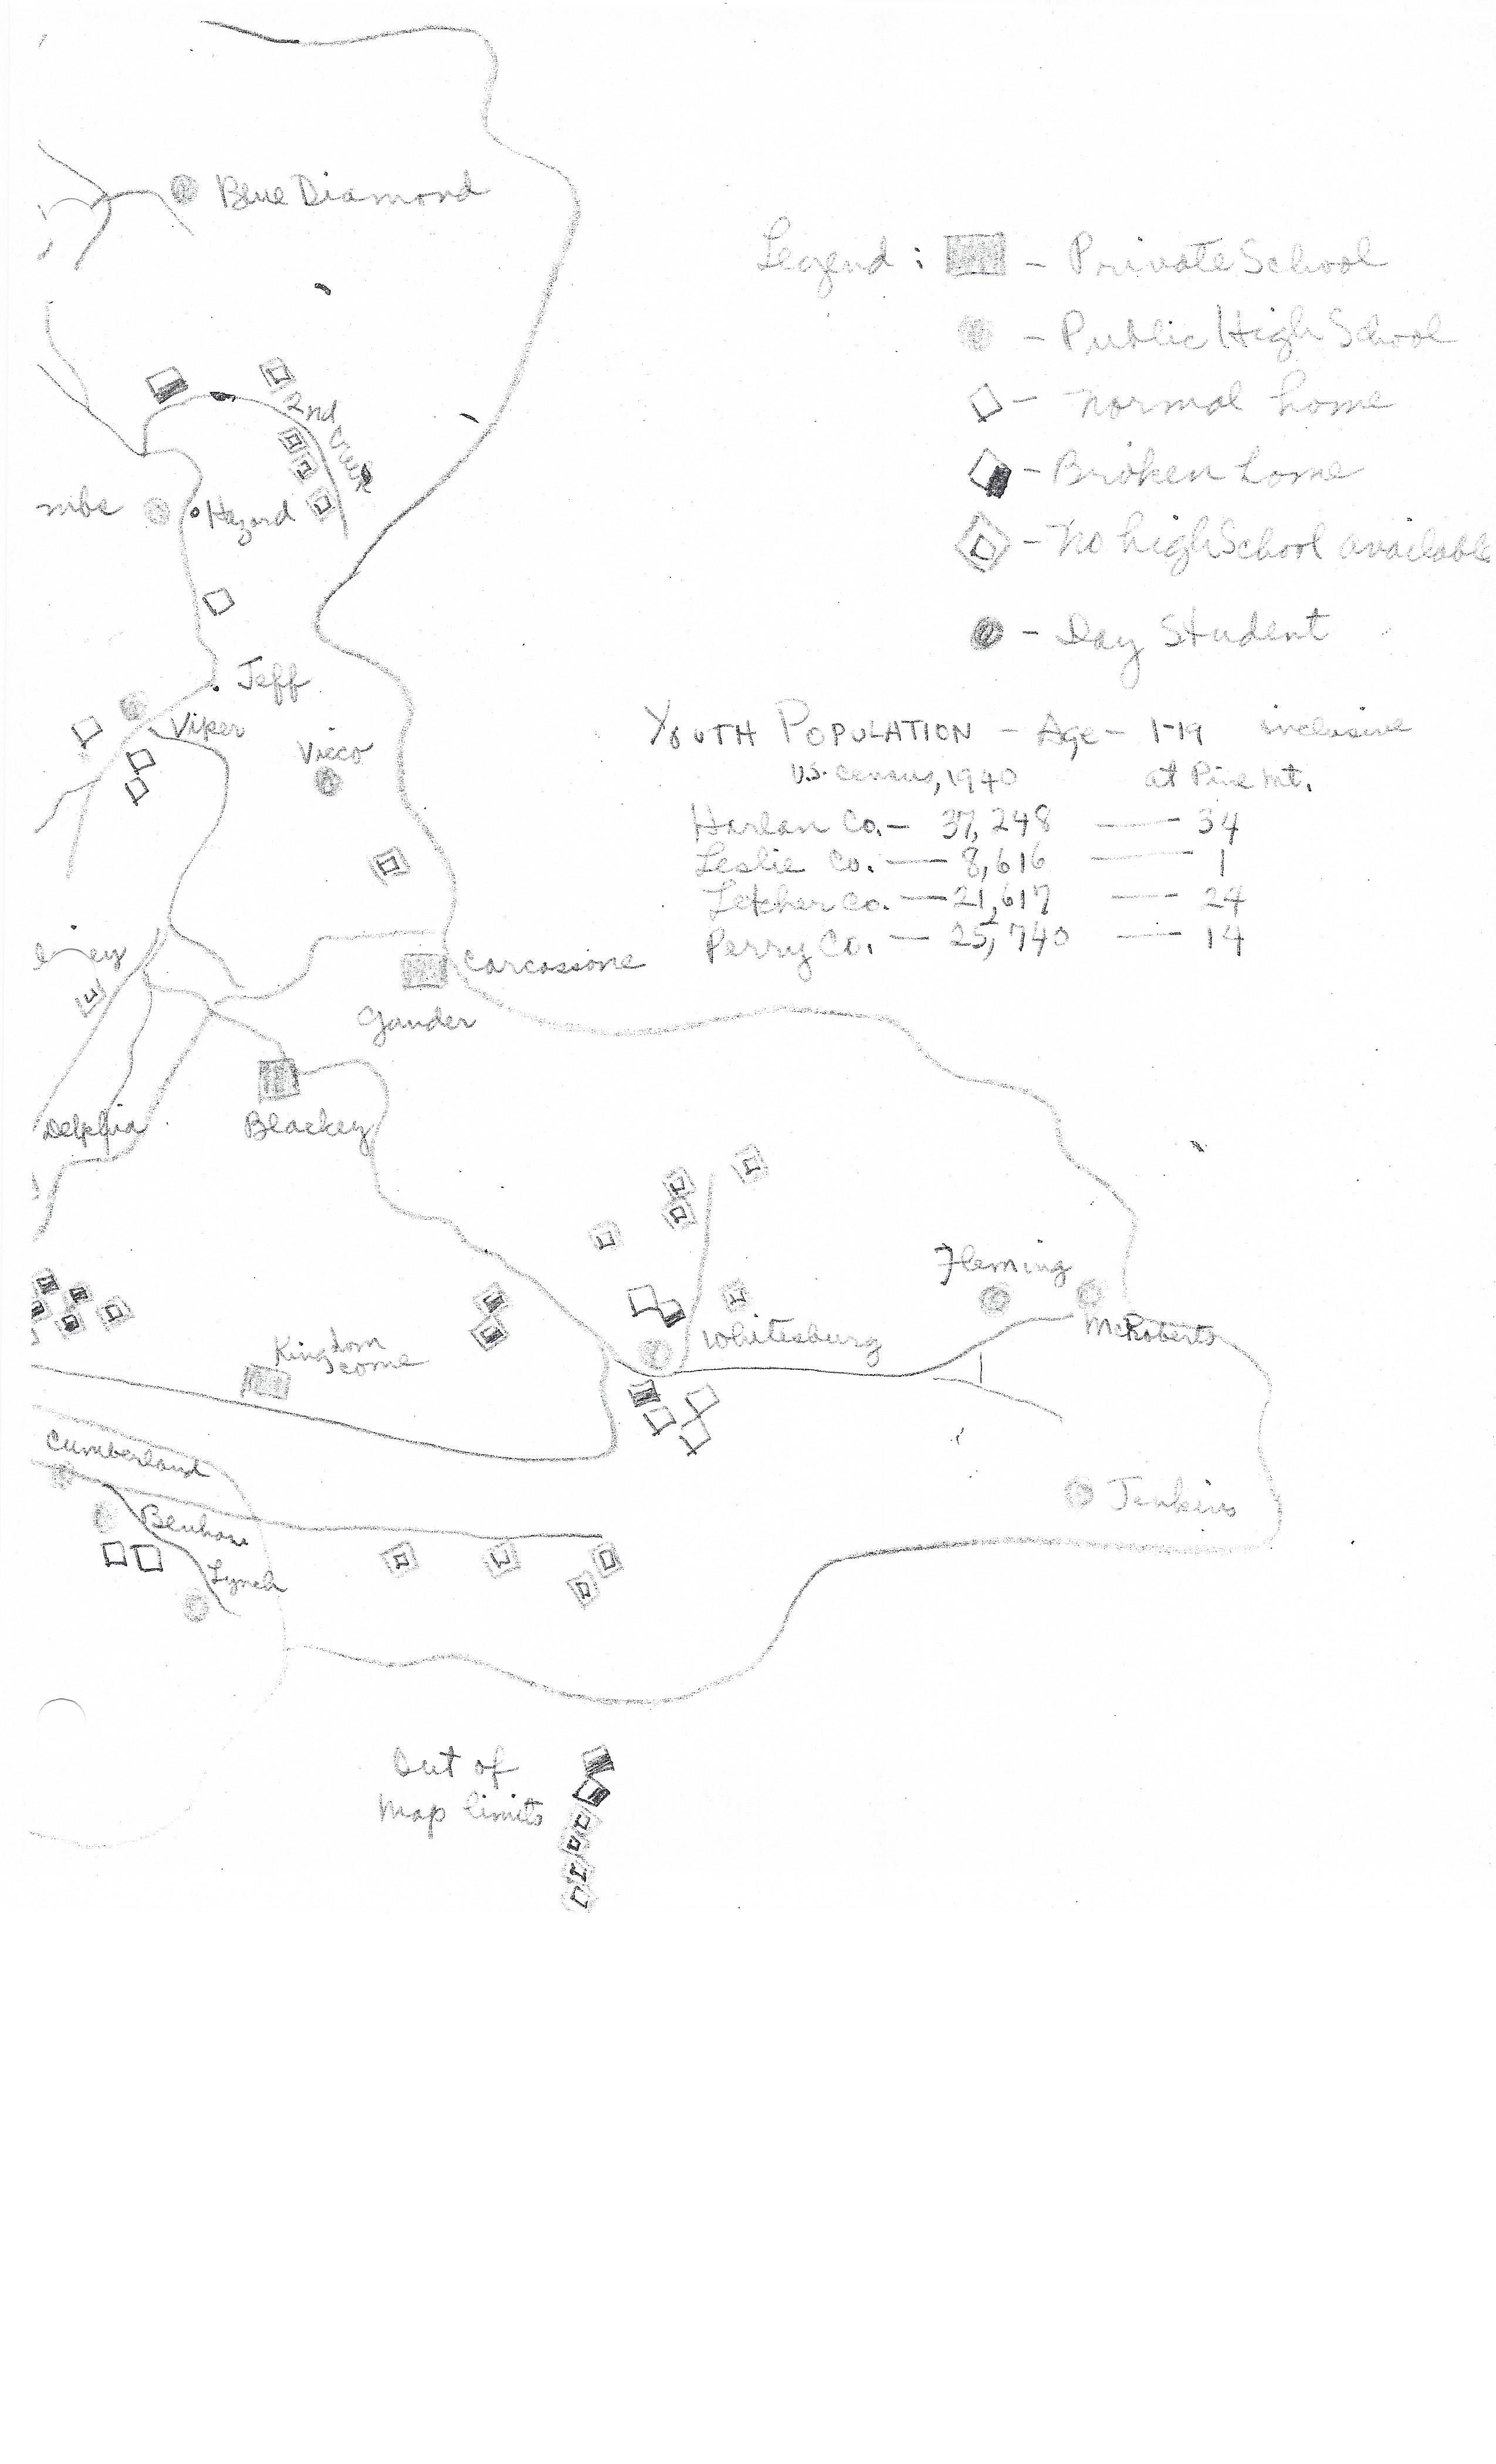 Blue Diamond
Legend : - Private School
- Public High School
- normal home
- Broken home
- No high School available
- Day Student
2nd Creek
mbs
Hazard
Jeff
Viper
Vicco
YOUTH POPULATION - Age - 1-19 inclusive
U.S. census, 1940 at Pine Mt.
Harlan Co. - 37,248 — 34
Leslie Co. — 8,616 — 1
Letcher Co. — 21,617 — 24
Perry Co. — 25,740 — 14
Carcassone
Gander
Blackey
Delphia
Fleming
McRoberts
Whitesburg
Kingdom
come
Cumberland
Benham
Lynch
Jenkins
Out of
Map limits